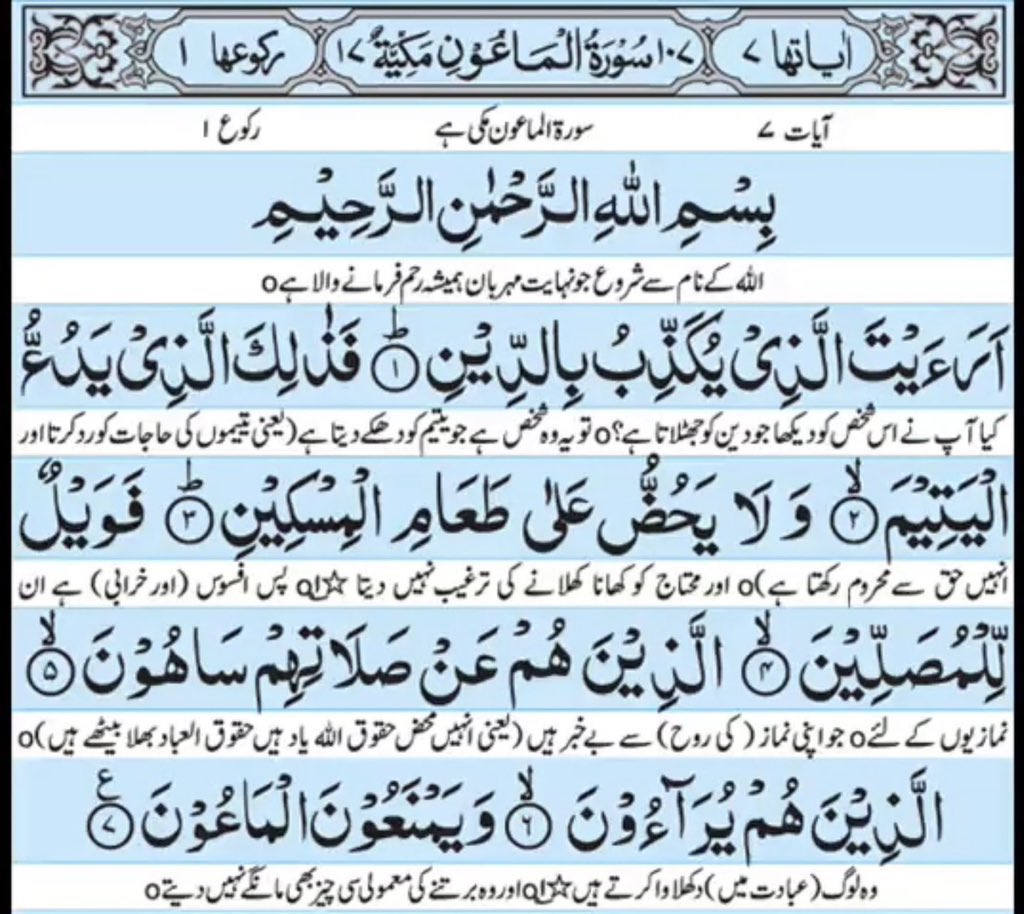 اٰیاتها ۷ ۱۰۷ سُوْرَةُ الْمَاعُوْنِ مَكِّيَّةٌ ۱۷ رکوعها ۱
آیات ۷ سورۃ الماعون مکی ہے رکوع ۱
بِسْمِ اللّٰهِ الرَّحْمٰنِ الرَّحِيْمِ
اللہ کے نام سے شروع جو نہایت مہربان ہمیشہ رحم فرمانے والا ہے o
اَرَءَيْتَ الَّذِيْ يُكَذِّبُ بِالدِّيْنِ ؕ۝۱ فَذٰلِكَ الَّذِيْ يَدُعُّ
کیا آپ نے اس شخص کو دیکھا جو دین کو جھٹلاتا ہے؟ o تو یہ وہ شخص ہے جو یتیم کو دھکے دیتا ہے (یعنی یتیموں کی حاجات کو رد کرتا اور
الْيَتِيْمَ ۙ۝۲ وَ لَا يَحُضُّ عَلٰى طَعَامِ الْمِسْكِيْنِ ؕ۝۳ فَوَيْلٌ
انہیں حق سے محروم رکھتا ہے) o اور محتاج کو کھانا کھلانے کی ترغیب نہیں دیتا ☆ پس افسوس (اور خرابی) ہے ان
لِّلْمُصَلِّيْنَ ۙ۝۴ الَّذِيْنَ هُمْ عَنْ صَلَاتِهِمْ سَاهُوْنَ ۙ۝۵
نمازیوں کے لئے o جو اپنی نماز (کی روح) سے بے خبر ہیں (یعنی انہیں محض حقوق اللہ یاد ہیں حقوق العباد بھلا بیٹھے ہیں) o
الَّذِيْنَ هُمْ يُرَآءُوْنَ ۙ۝۶ وَيَمْنَعُوْنَ الْمَاعُوْنَ ۝۷ع
وہ لوگ (عبادت میں) دکھلاوا کرتے ہیں ☆ اور وہ برتنے کی معمولی سی چیز بھی مانگے نہیں دیتے o